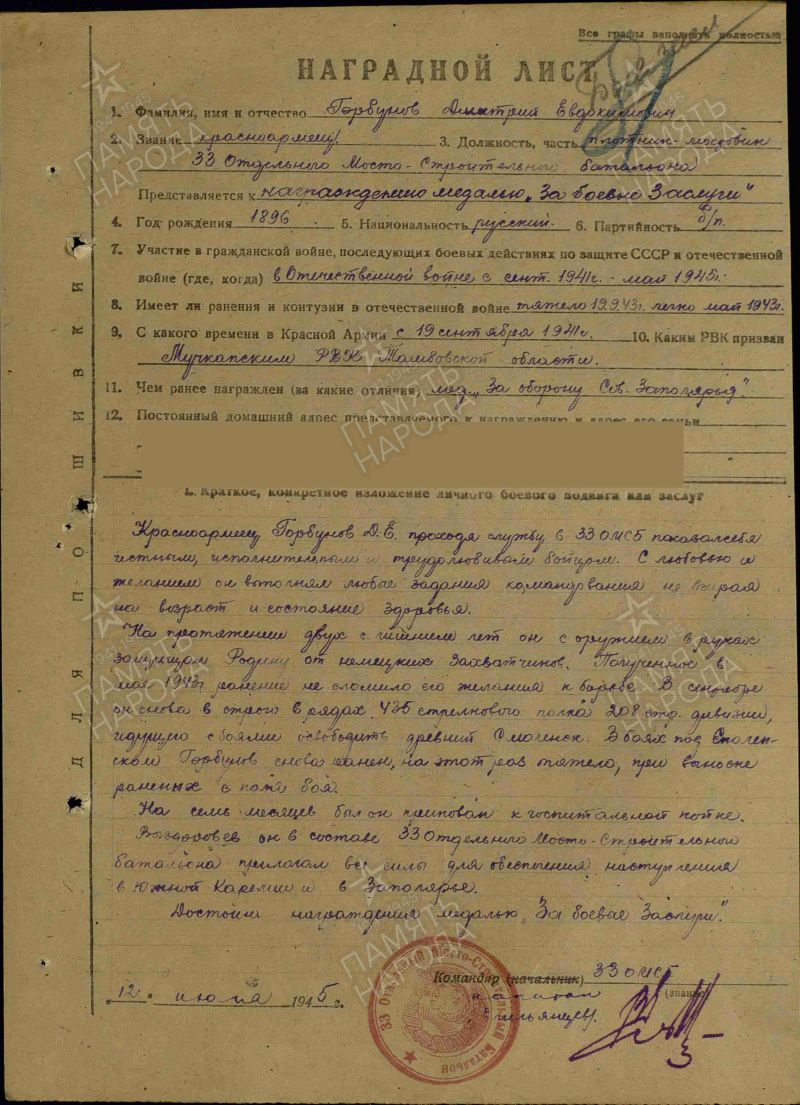 Все графы заполнять полностью
НАГРАДНОЙ ЛИСТ
1. Фамилия, имя и отчество Горбунов Дмитрий Евдокимович
2. Звание красноармеец 3. Должность, часть плотник-мостовик
33 Отдельного Мосто-Строительного батальона
Представляется к награждению медалью „За боевые Заслуги"
4. Год рождения 1896 5. Национальность русский 6. Партийность б/п.
7. Участие в гражданской войне, последующих боевых действиях по защите СССР и отечественной
войне (где, когда) в Отечественной войне с сент. 1941г. - май 1945г.
8. Имеет ли ранения и контузии в отечественной войне тяжело 19.9.43г. легко май 1943г.
9. С какого времени в Красной Армии с 19 сентября 1941г. 10. Каким РВК призван
Мучкапским РВК Тамбовской области.
11. Чем ранее награжден (за какие отличия) мед. „За оборону Сов. Заполярья".
12. Постоянный домашний адрес представляемого к награждению и адрес его семьи
I. Краткое, конкретное изложение личного боевого подвига или заслуг
Красноармеец Горбунов Д.Е. проходя службу в 33 ОМСБ показал себя
честным, исполнительным и трудолюбивым бойцом. С любовью и
желанием он выполнял любые задания командования не взирая
на возраст и состояние здоровья.
На протяжении двух с лишним лет он с оружием в руках
защищал Родину от немецких захватчиков. Полученное в
мае 1943г. ранение не сломило его желания к борьбе. В сентябре
он снова в строю в рядах 435 стрелкового полка 208 стр. дивизии,
идущего с боями освободить древний Смоленск. В боях под Смолен-
ском Горбунов снова ранен, на этот раз тяжело, при выноске
раненых с поля боя.
На семь месяцев был он прикован к госпитальной койке.
Выздоровев он в составе 33 Отдельного Мосто-Строительного
батальона прилагал все силы для обеспечения наступления
в Южной Карелии и в Заполярье.
Достоин награждения медалью „За боевые Заслуги".
Командир (начальник) 33 ОМСБ
капитан (звание)
12. июля 1945г.
33 Отдельный Мосто-Строительный Батальон
ДЛЯ ПОДШИВКИ
ПАМЯТЬ НАРОДА